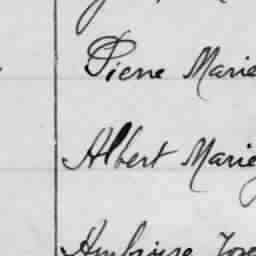 Pierre Marie
Albert Marie
Ambroise